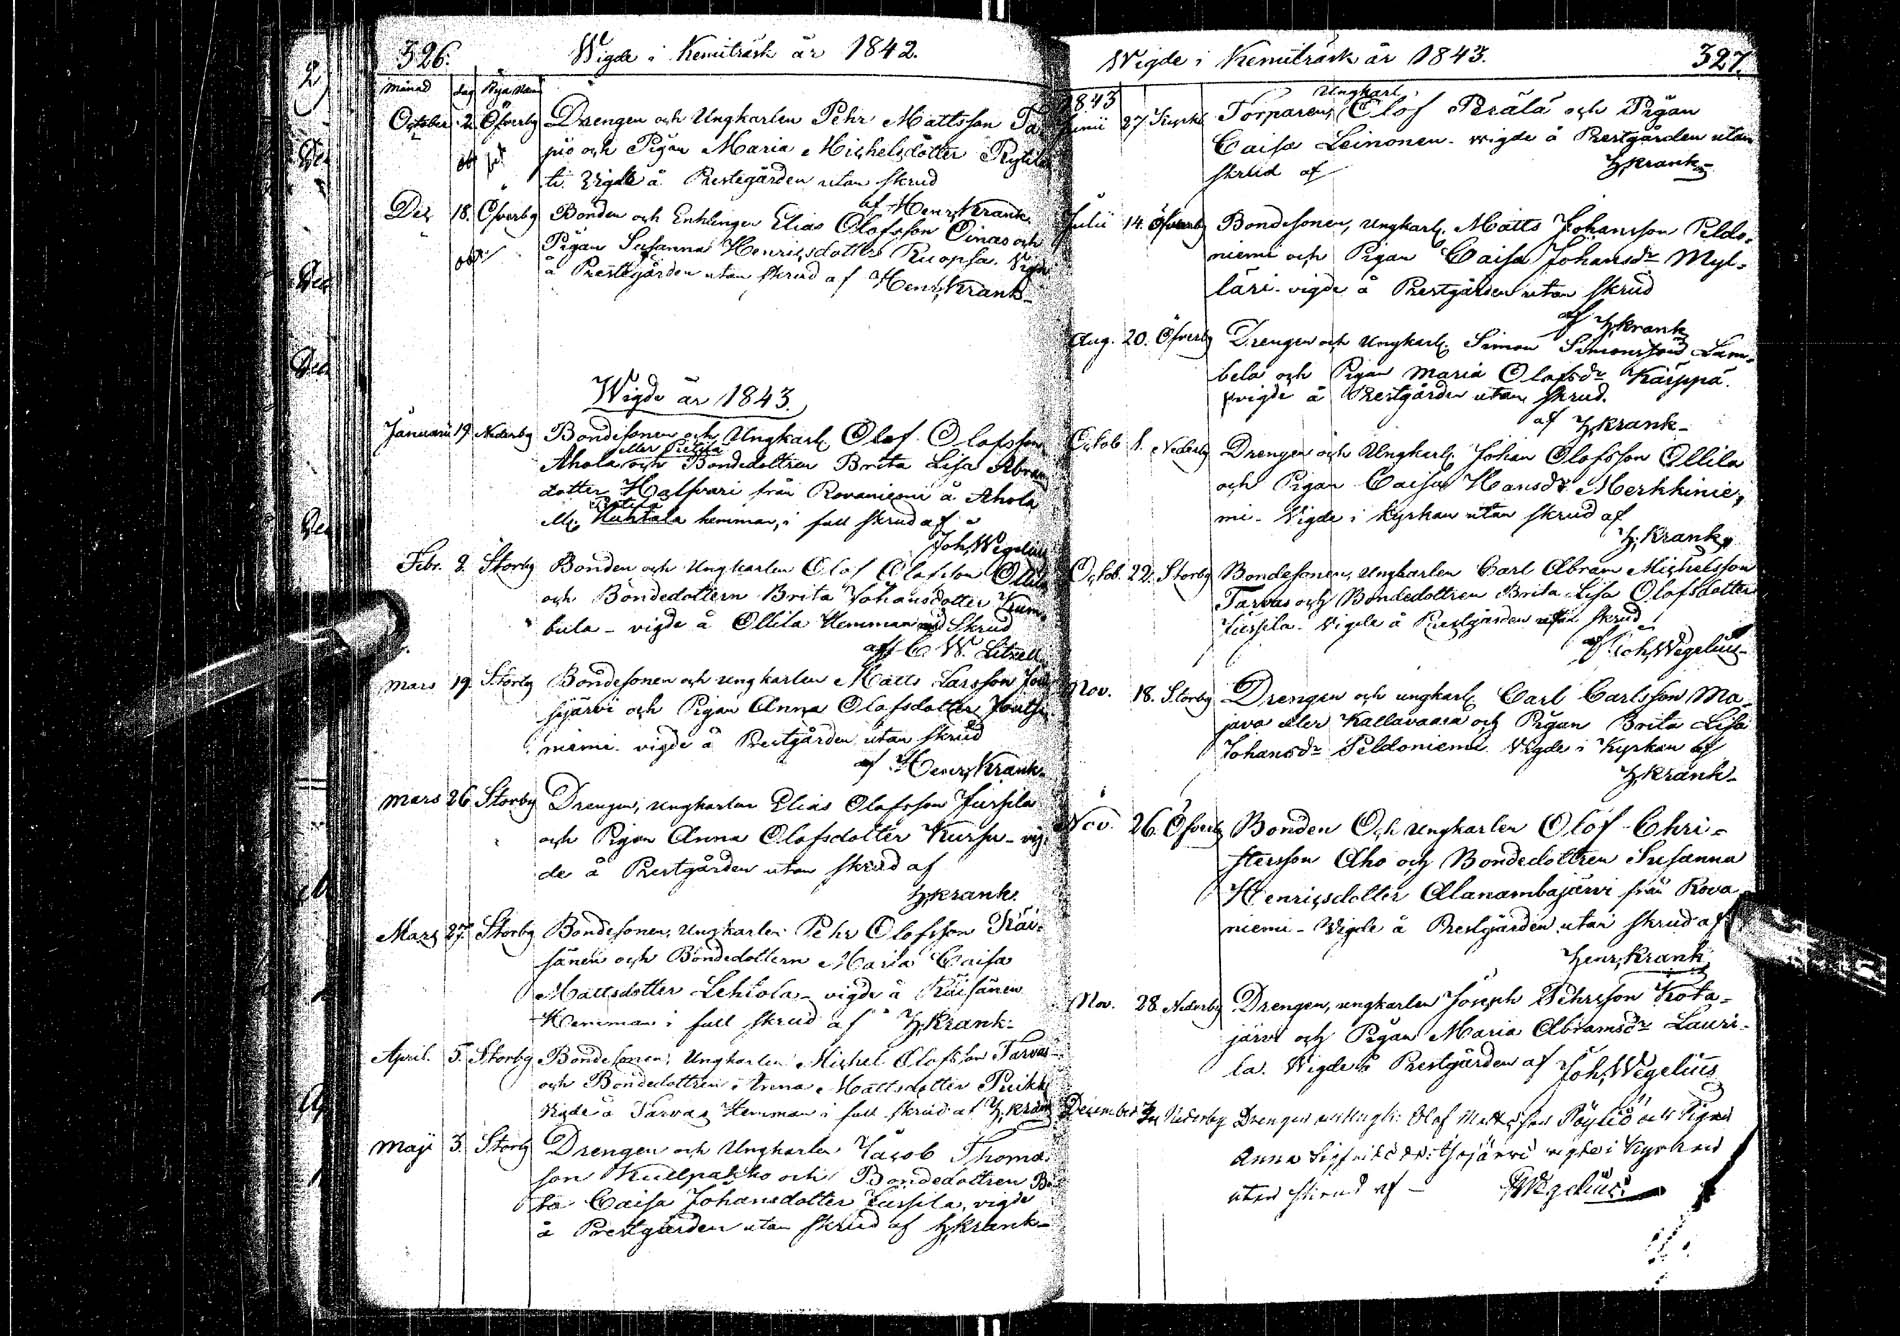 326.
Wigde i Kemiträsk år 1842.
Månad dag Bya Namn
October 2. Öfverby Drengen och Ungkarlen Pehr Mattsson Ta-
pio och Pigan Maria Michelsdotter Pyti
ti Vigde å Prestegården utan skrud
af Henr. Krank
Dec 18. Öfverby Bonden och Enklingen Elias Olofsson Oinas och
Pigan Susanna Henricsdotter Ruopsa. Vigde
å Prestegården utan skrud af Henr. Krank-
Wigde år 1843.
Januarii 19. Nederby Bondesonen och Ungkarl. Olof Olofsson
eller Pietila
Ahola och Bondedottren Brita Lisa Abrams
dotter Halfvari från Rovaniemi å Ahola
hemman, i full skrud af
Joh. Wegelius
Febr. 2. Storby Bonden och Ungkarlen Olof Olofsson Ollila
och Bondedottern Brita Johansdotter Kum-
bula - vigde å Ollila Hemman med Skrud
af C W. Litzell
Mars 19. Storby Bondesonen och ungkarlen Matts Larsson
sijärvi och Pigan Anna Olofsdotter Joutsi
niemi. vigde å Prestgården utan skrud
af Henr. Krank-
Mars 26 Storby Drengen, ungkarlen Elias Olofsson Jussila
och Pigan Anna Olofsdotter Kursu - vig-
de å Prestgården utan skrud af
H. Krank.
Mars 27. Storby Bondesonen, Ungkarlen Pehr Olofsson Räi-
sänen och Bondedottern Maria Caisa
Mattsdotter Lehtola - vigde å Räisänen
Hemman i full skrud af H. Krank-
April. 5. Storby Bondesonen, Ungkarlen Michel Olofsson Tarvas
och Bondedottren Anna Mattsdotter Puikk
Vigde å Tarvas Hemman i full skrud af H. Krank
Maji 3. Storby Drengen och Ungkarlen Jacob Thomas-
son Kullpakko och Bondedottren Bri
ta Caisa Johansdotter Jussila, vigde
å Prestgården utan skrud af H. Krank-
Wigde i Kemiträsk år 1843.
327.
1843
Ungkarl.
Junii 27. Torparen, Olof Perälä och Pigan
Caisa Leinonen. vigde å Prestgården utan
skrud af H. Krank-
Julii 14. Öfverby Bondesonen, ungkarl. Matts Johansson Peldo-
niemi och Pigan Caisa Johansdr Myl-
läri. vigde å Prestgården utan skrud
af H. Krank
Aug. 20. Öfverby Drengen och Ungkarl. Simon Simonsson Lam-
bela och Pigan Maria Olofsdr Karppa.
vigde å Prestgården utan skrud.
af H. Krank-
Octob 1. Nederby Drengen och Ungkarl. Johan Olofsson Ollila
och Pigan Caisa Hansdr Merkkinie,
mi- Vigde i Kyrkan utan skrud af
H. Krank
Octob. 22. Storby Bondesonen, Ungkarlen Carl Abram Michelsson
Tarvas och Bondedottren Brita Lisa Olofsdotter
Jussila. Vigde å Prestgården utan skrud
af Joh. Wegelius
Nov. 18. Storby Drengen och ungkarl. Carl Carlsson Ma-
java eller Kallavaara och Pigan Brita Lisa
Johansdr Peldoniemi Vigde i Kyrkan af
H. Krank-
Nov. 26. Öfverby Bonden Och Ungkarlen Olof Chri-
stersson Aho och Bondedottren Susanna
Henricsdotter Alanambajärvi från Rova
niemi - Vigde å Prestgården utan skrud af
Henr. Krank
Nov. 28 Nederby Drengen, ungkarlen Joseph Pehrsson Kota-
järvi och Pigan Maria Abramsdr Lauri-
la. Vigde å Prestgården af Joh. Wegelius
December Nederby Drengen Olof Mattsson Pöyliö och Pigan
Anna vigde i Kyrkan
utan skrud af - Wegelius